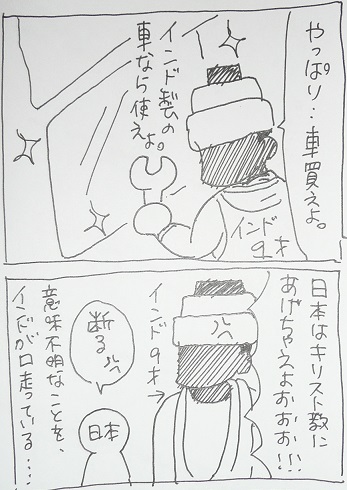 やっぱり‥車買えよ。
インド製の
車なら使えよ。
インド
9才
日本はキリスト教に
あげちゃえよおおお!!!
インド9才→
断る
日本
意味不明なことを、
インドが口走っている‥‥